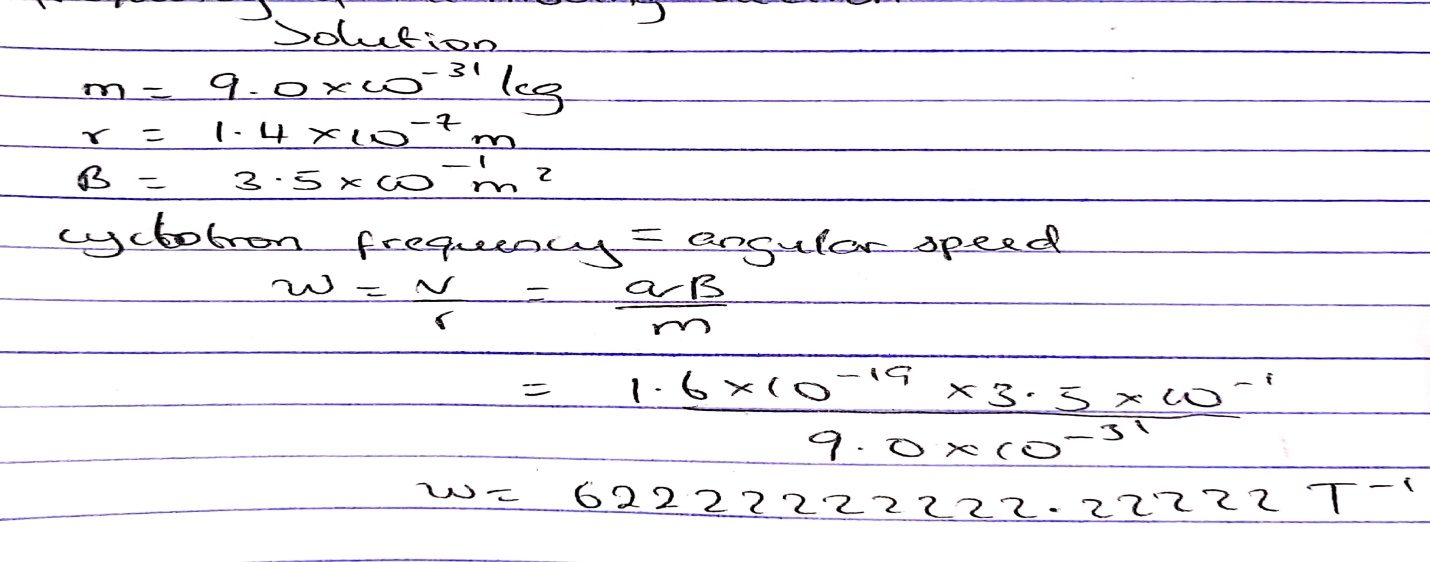 Solution
m = 9.0 x 10^-31 kg
r = 1.4 x 10^-7 m
B = 3.5 x 10^-1 m^2
cyclotron frequency = angular speed
w = v/r = qB/m
= (1.6 x 10^-19 x 3.5 x 10^-1)/(9.0 x 10^-31)
w = 62222222222.22222 T^-1